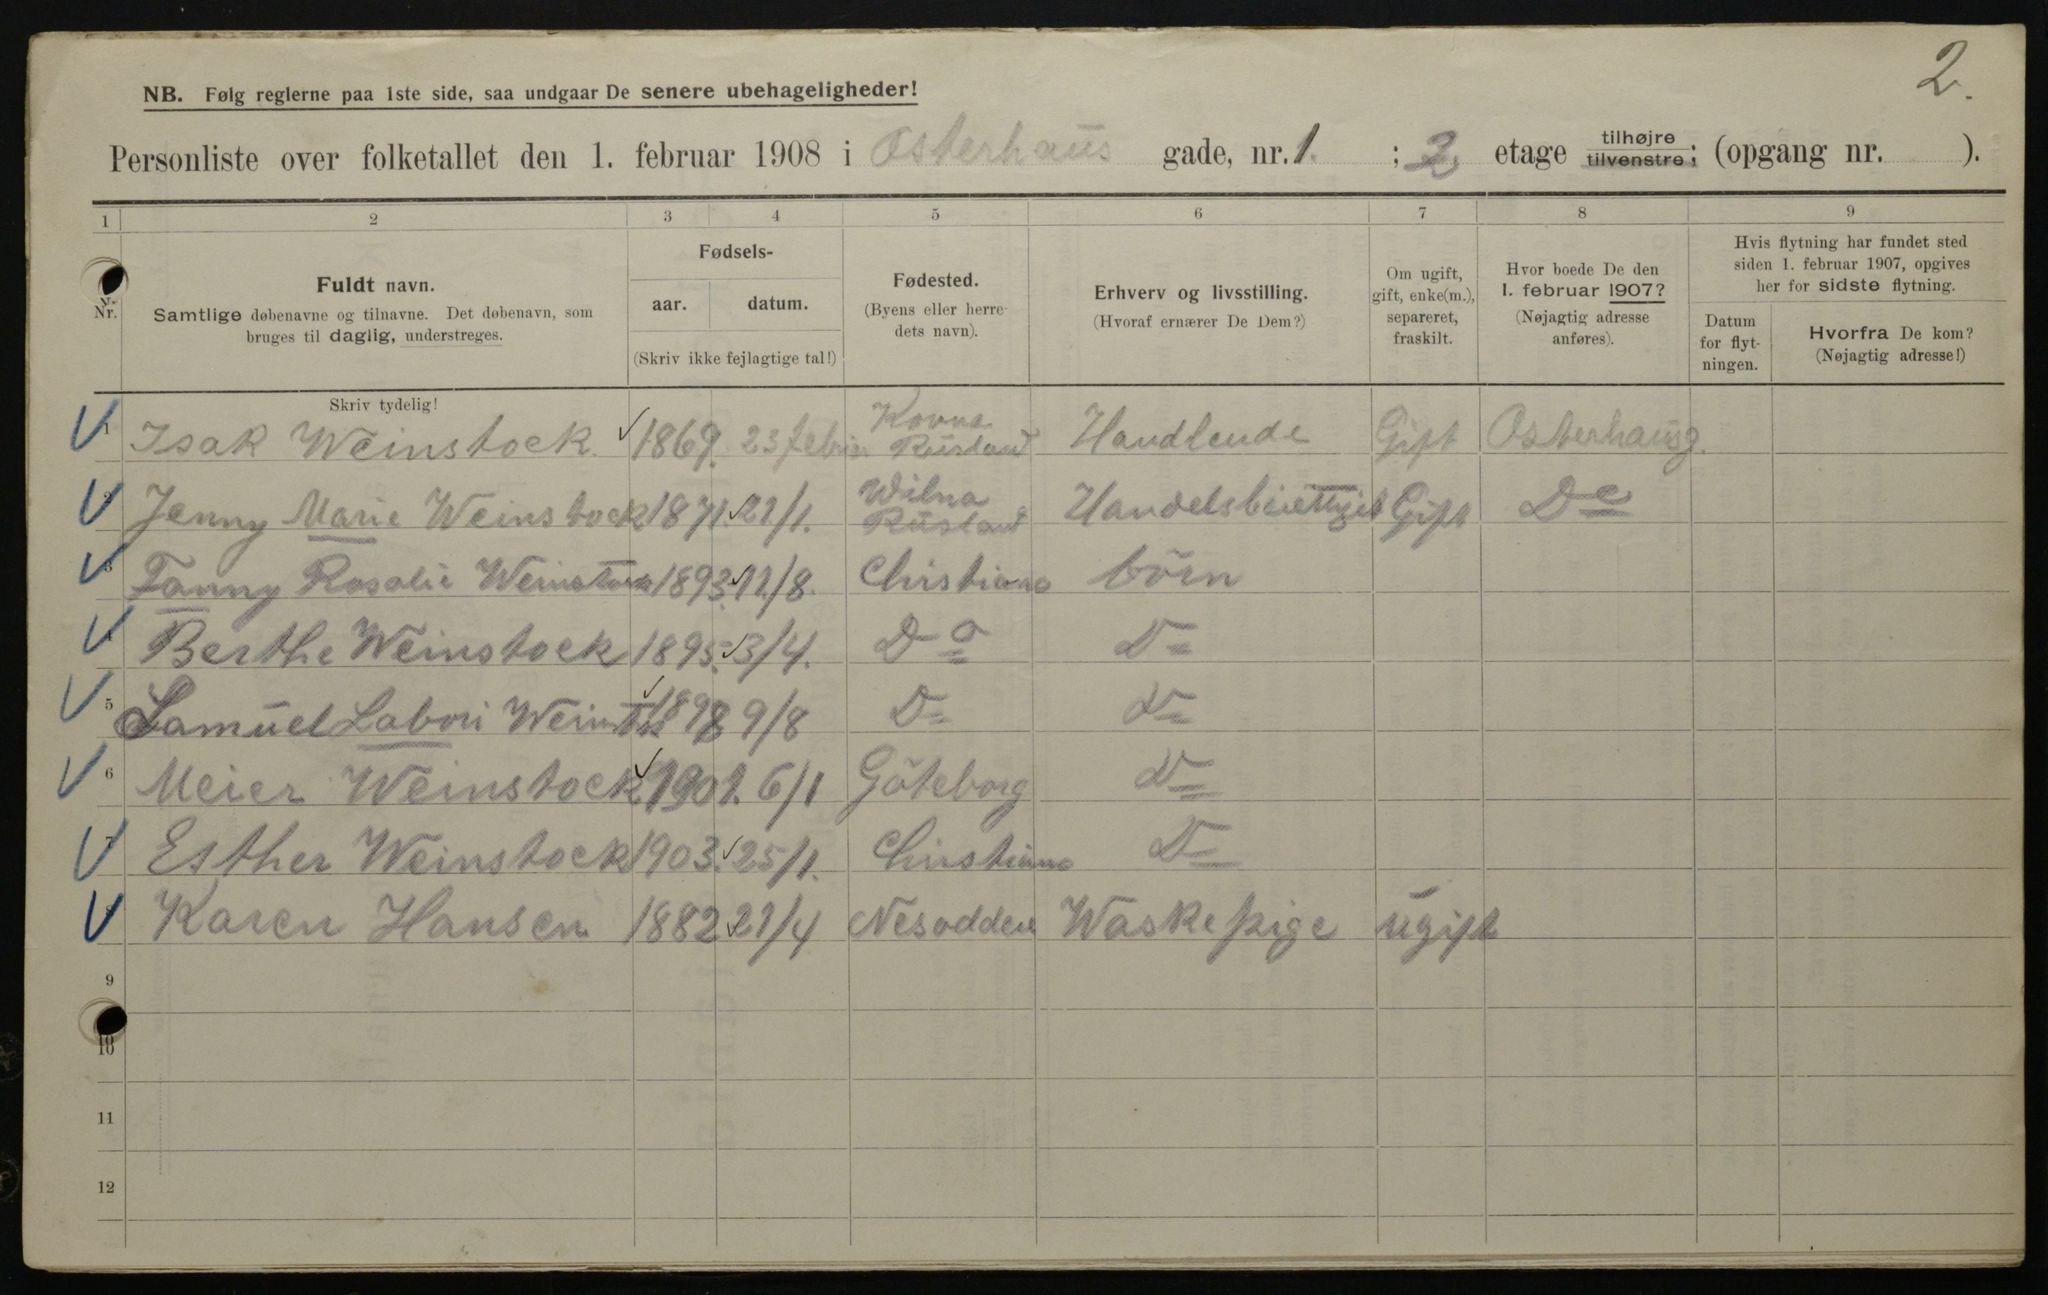 2.
NB. Følg reglerne paa 1ste side, saa undgaar De senere ubehageligheder!
Personliste over folketallet den 1. februar 1908 i Osterhaus gade, nr. 1. ; 2. etage tilhøjre tilvenstre; (opgang nr. ).
1 2 3 4 5 6 7 8 9
Nr.
Fuldt navn.
Samtlige døbenavne og tilnavne. Det døbenavn, som
bruges til daglig, understreges.
Fødsels-
aar. datum.
(Skriv ikke fejlagtige tal!)
Fødested.
(Byens eller herre-
dets navn).
Erhverv og livsstilling.
(Hvoraf ernærer De Dem?)
Om ugift,
gift, enke(m.),
separeret,
fraskilt.
Hvor boede De den
1. februar 1907?
(Nøjagtig adresse
anføres).
Hvis flytning har fundet sted
siden 1. februar 1907, opgives
her for sidste flytning.
Datum
for flyt-
ningen.
Hvorfra De kom?
(Nøjagtig adresse!)
Skriv tydelig!
1 Isak Weinstock 1869. 23 Kovna Rusland Handlende Gift Osterhausg.
2 Jenny Marie Weinstock 1871. 21/1. Wilna Rusland Gift Do
3 Fanny Rosalie Weinstock 1893. 11/8. Christiana börn
4 Berthe Weinstock 1895. 3/4. Do D
5 Samuel Labori Weinstock 1898 9/8 D D
6 Meier Weinstock 1901. 6/1 Göteborg D
7 Esther Weinstock 1903. 25/1. Christiana D
8 Karen Hansen 1882 21/4 Nesodden Waskepige ugift
9
10
11
12